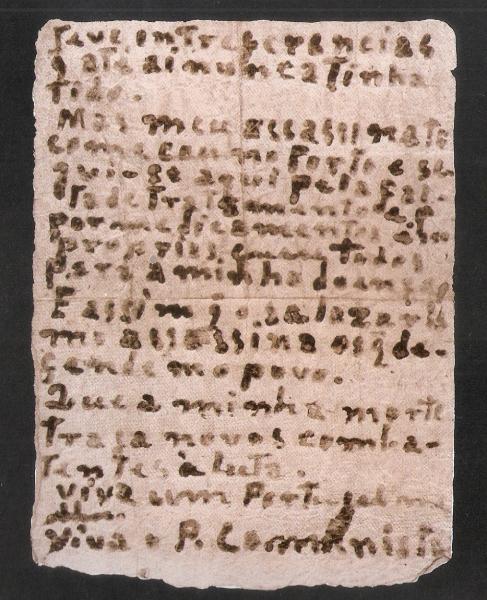 teve intreferencias
q até aí nunca tinha
tido.
Mas meu assassinato
começou no Porto e se
guio-se aqui pela fal-
ta de tratamento e p
por medicamentos im
proprios quem todos
para a minha doença,
E assim q o salazaris
mo assassina os q de-
fendem o povo.
Que a minha morte
traga novos comba-
tentes à luta.
viva um Portugal
viva o P. Comunista